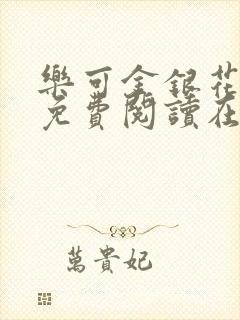 樂可金銀花
免費閱讀在
萬貴妃